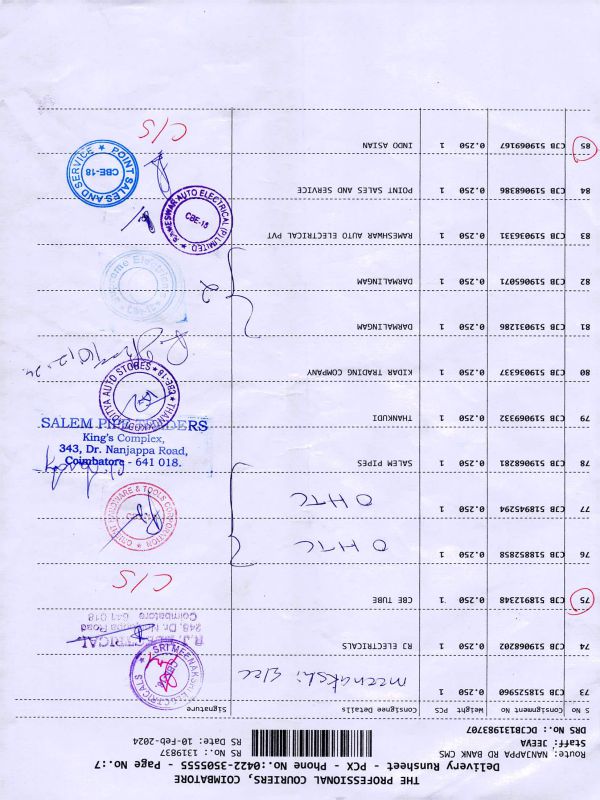 THE PROFESSIONAL COURIERS, COIMBATORE
Delivery Runsheet - PCX - Phone No.:0422-3505555 - Page No.:7
Route: NANJAPPA RD BANK CMS
Staff: JEEVA
DRS No.: DCJB131983707
RS No.: 1319837
RS Date: 10-Feb-2024
S No Consignment No Weight PCS Consignee Details Signature
73 CJB 518525960 0.250 1 meenakshi Elec
SRI MEENAKSHI ELECTRICALS
74 CJB 519068202 0.250 1 RJ ELECTRICALS
R.J. ELECTRICAL
Coimbatore 641 018
75 CJB 518912348 0.250 1 CBE TUBE C/S
76 CJB 518852858 0.250 1 OHTC
77 CJB 518945294 0.250 1 OHTC
ORIENT HARDWARE & TOOLS CORPORATION
78 CJB 519068281 0.250 1 SALEM PIPES
SALEM PIPE TRADERS
King's Complex,
343, Dr. Nanjappa Road,
Coimbatore - 641 018.
79 CJB 519069332 0.250 1 THANKUDI
THANDUKODITYA AUTO STORES CBE-18
80 CJB 519036337 0.250 1 KIDAR TRADING COMPANY
81 CJB 519031286 0.250 1 DARMALINGAM
82 CJB 519065071 0.250 1 DARMALINGAM
2
83 CJB 519036331 0.250 1 RAMESHWAR AUTO ELECTRICAL PVT
RAMESWAR AUTO ELECTRICAL (P) LIMITED
CBE-18
84 CJB 519068386 0.250 1 POINT SALES AND SERVICE
POINT SALES AND SERVICE
CBE-18
85 CJB 519069167 0.250 1 INDO ASIAN C/S